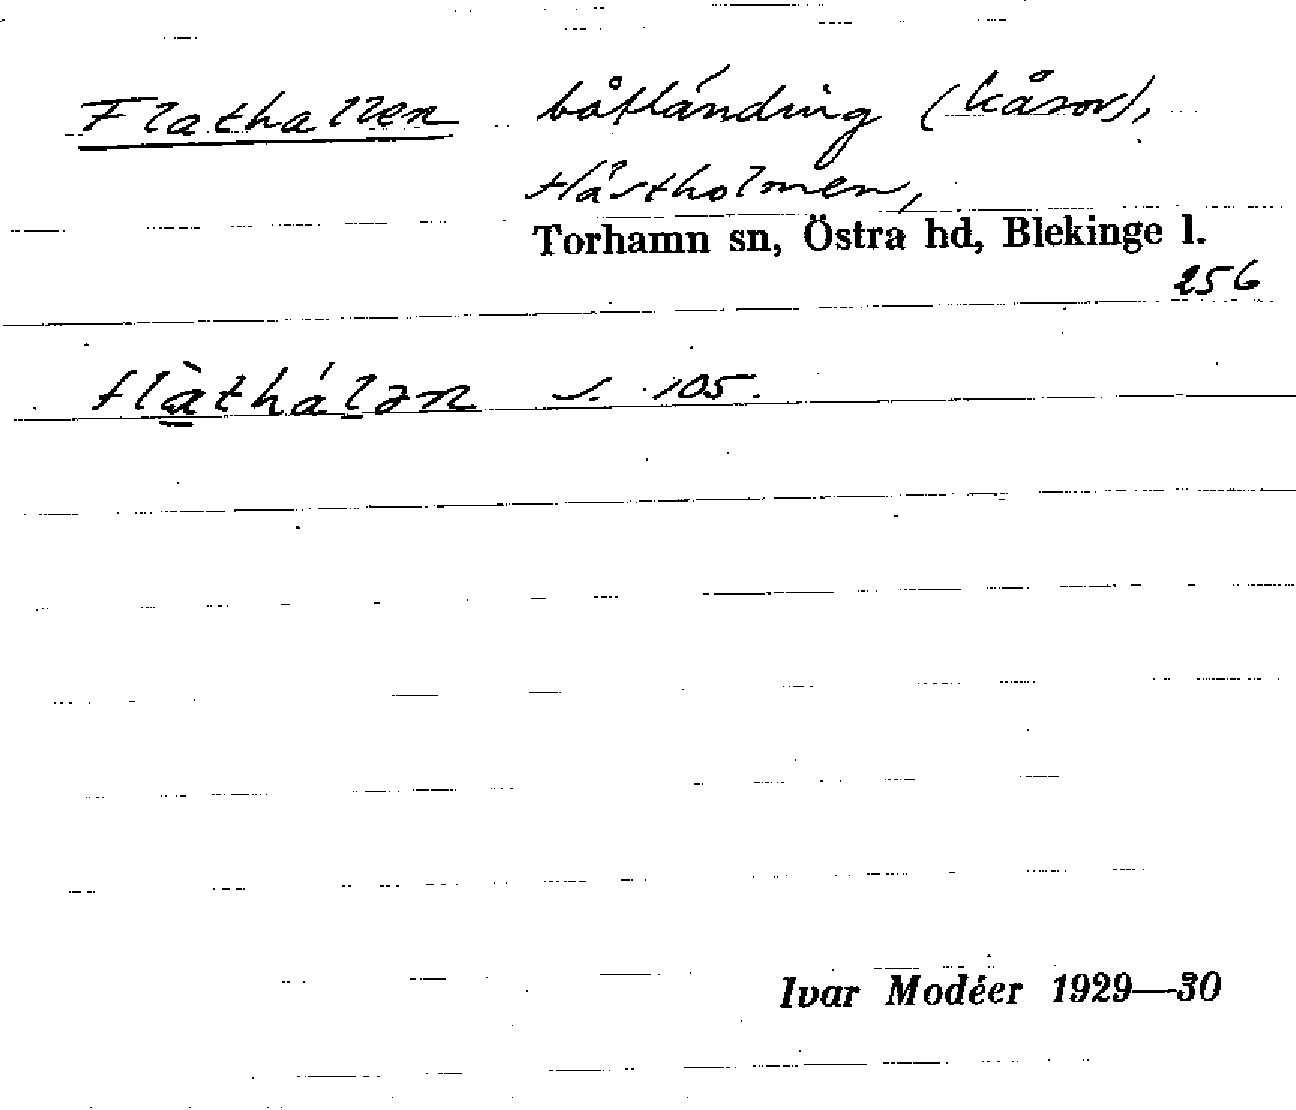 Flathallen båtlánding (kåsor),
Hästholmen,
Torhamn sn, Östra hd, Blekinge l.
256
flàthálən s. 105.
Ivar Modéer 1929—30